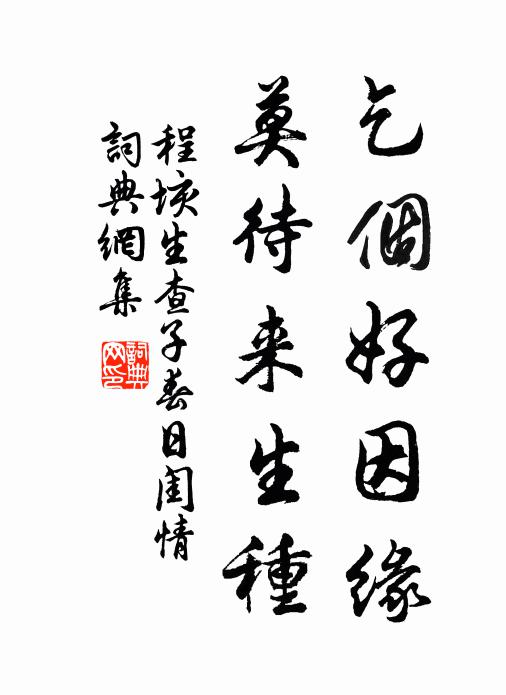 乞個好因緣
莫待来生種
程垓生查子春日閨情
詞典網集
詞典網印